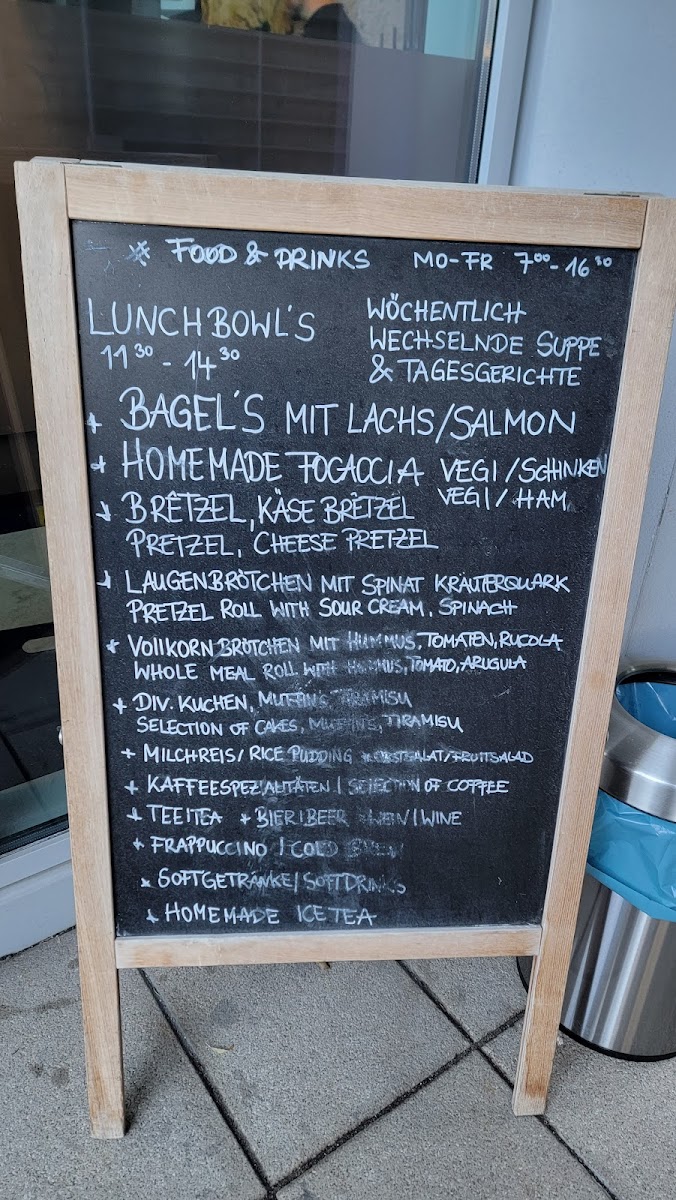 * FOOD & DRINKS MO-FR 7⁰⁰-16³⁰
LUNCHBOWL'S
11³⁰ - 14³⁰
WÖCHENTLICH
WECHSELNDE SUPPE
& TAGESGERICHTE
* BAGEL'S MIT LACHS/SALMON
* HOMEMADE FOCACCIA VEGI/SCHINKEN
VEGI/HAM
* BRETZEL, KÄSE BRETZEL
PRETZEL, CHEESE PRETZEL
* LAUGENBRÖTCHEN MIT SPINAT KRÄUTERQUARK
PRETZEL ROLL WITH SOUR CREAM, SPINACH
* VOLLKORNBRÖTCHEN MIT HUMMUS, TOMATEN, RUCOLA
WHOLE MEAL ROLL WITH HUMMUS, TOMATO, ARUGULA
* DIV. KUCHEN, MUFFINS, TIRAMISU
SELECTION OF CAKES, MUFFINS, TIRAMISU
* MILCHREIS/RICE PUDDING * OBSTSALAT/FRUITSALAD
* KAFFEESPEZIALITÄTEN | SELECTION OF COFFEE
* TEE|TEA * BIER|BEER * WEIN|WINE
* FRAPPUCCINO | COLD BREW
* SOFTGETRÄNKE/SOFTDRINKS
* HOMEMADE ICE TEA